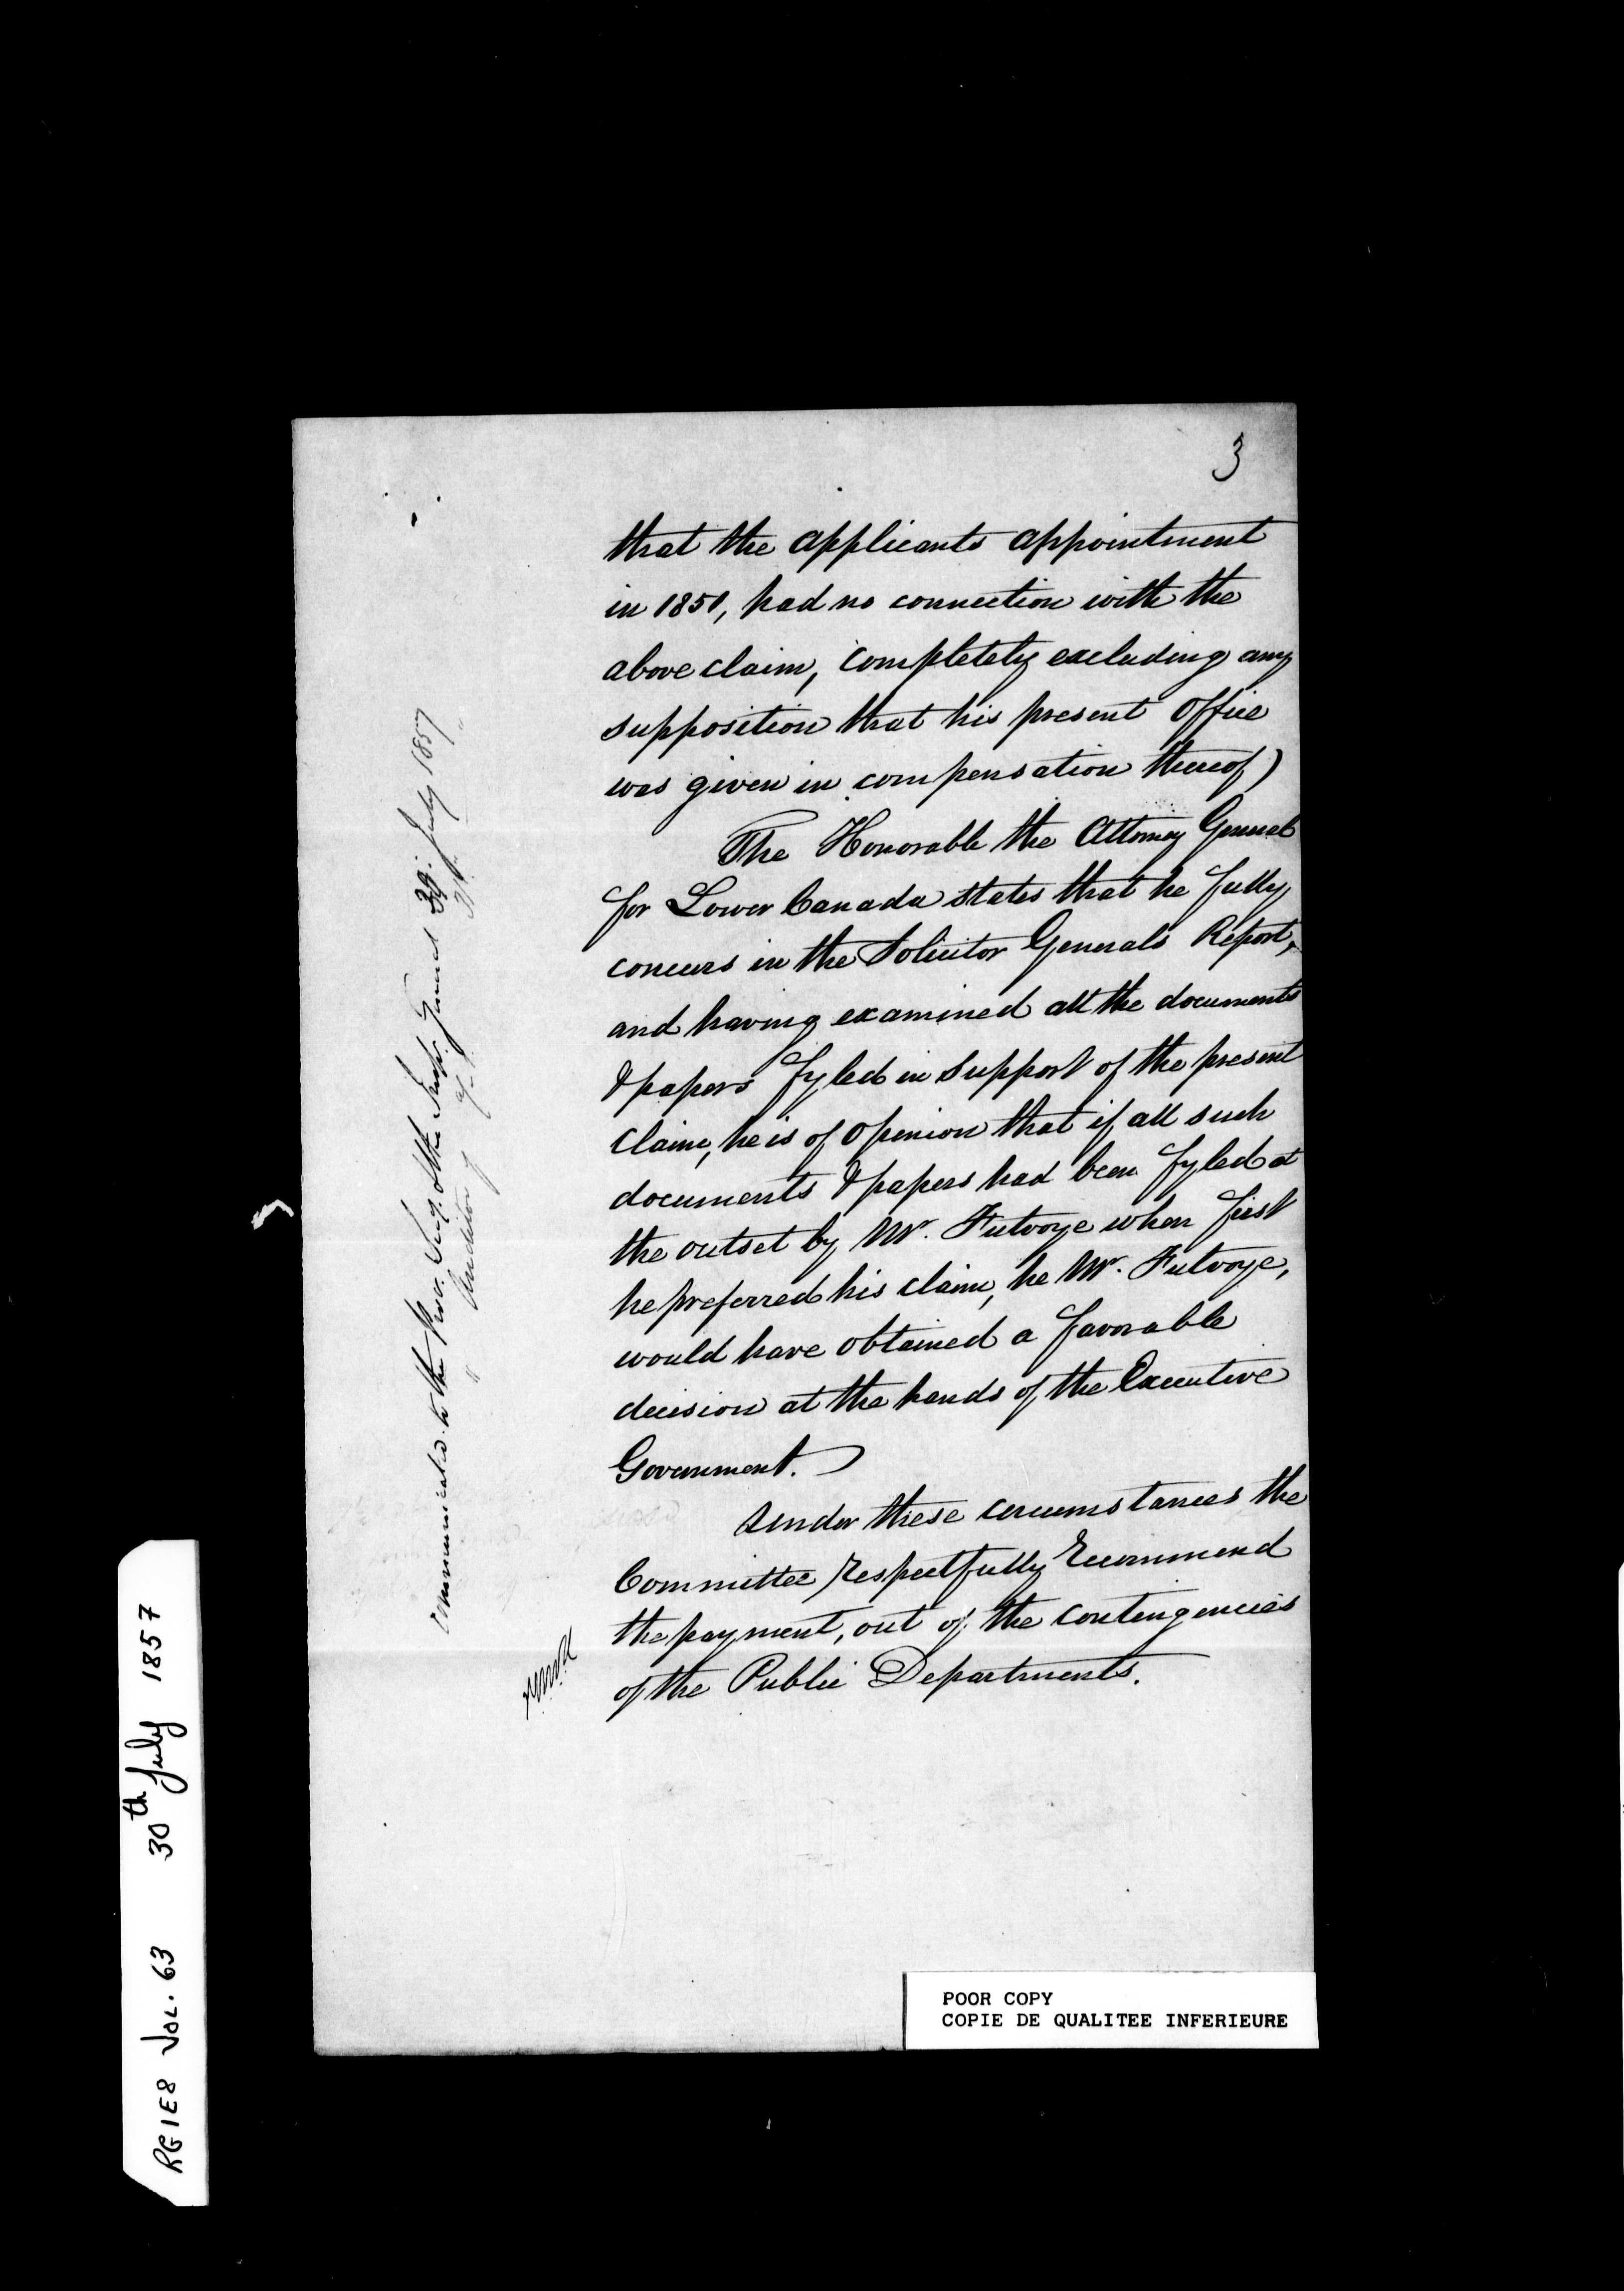 3
that the applicants appointment
in 1851, had no connection with the
above claim, completely excluding any
supposition that his present Office
was given in compensation thereof)
The Honorable the Attorney General
for Lower Canada states that he fully
concurs in the Solicitor Generals Report,
and having examined all the documents
& papers fyled in support of the present
claim, he is of opinion that if all such
documents & papers had been fyled at
the outset by Mr. Futvoye when first
he preferred his claim, he Mr. Futvoye,
would have obtained a favorable
decision at the hands of the Executive
Government.
Under these circumstances the
Committee respectfully recommend
the payment, out of the contingencies
of the Public Departments.
Communicated to the Prov. Secy. & the Insp. General 30. July 1857
" Auditor 31. "
RG1E8 VOL. 63 30th July 1857
POOR COPY
COPIE DE QUALITEE INFERIEURE